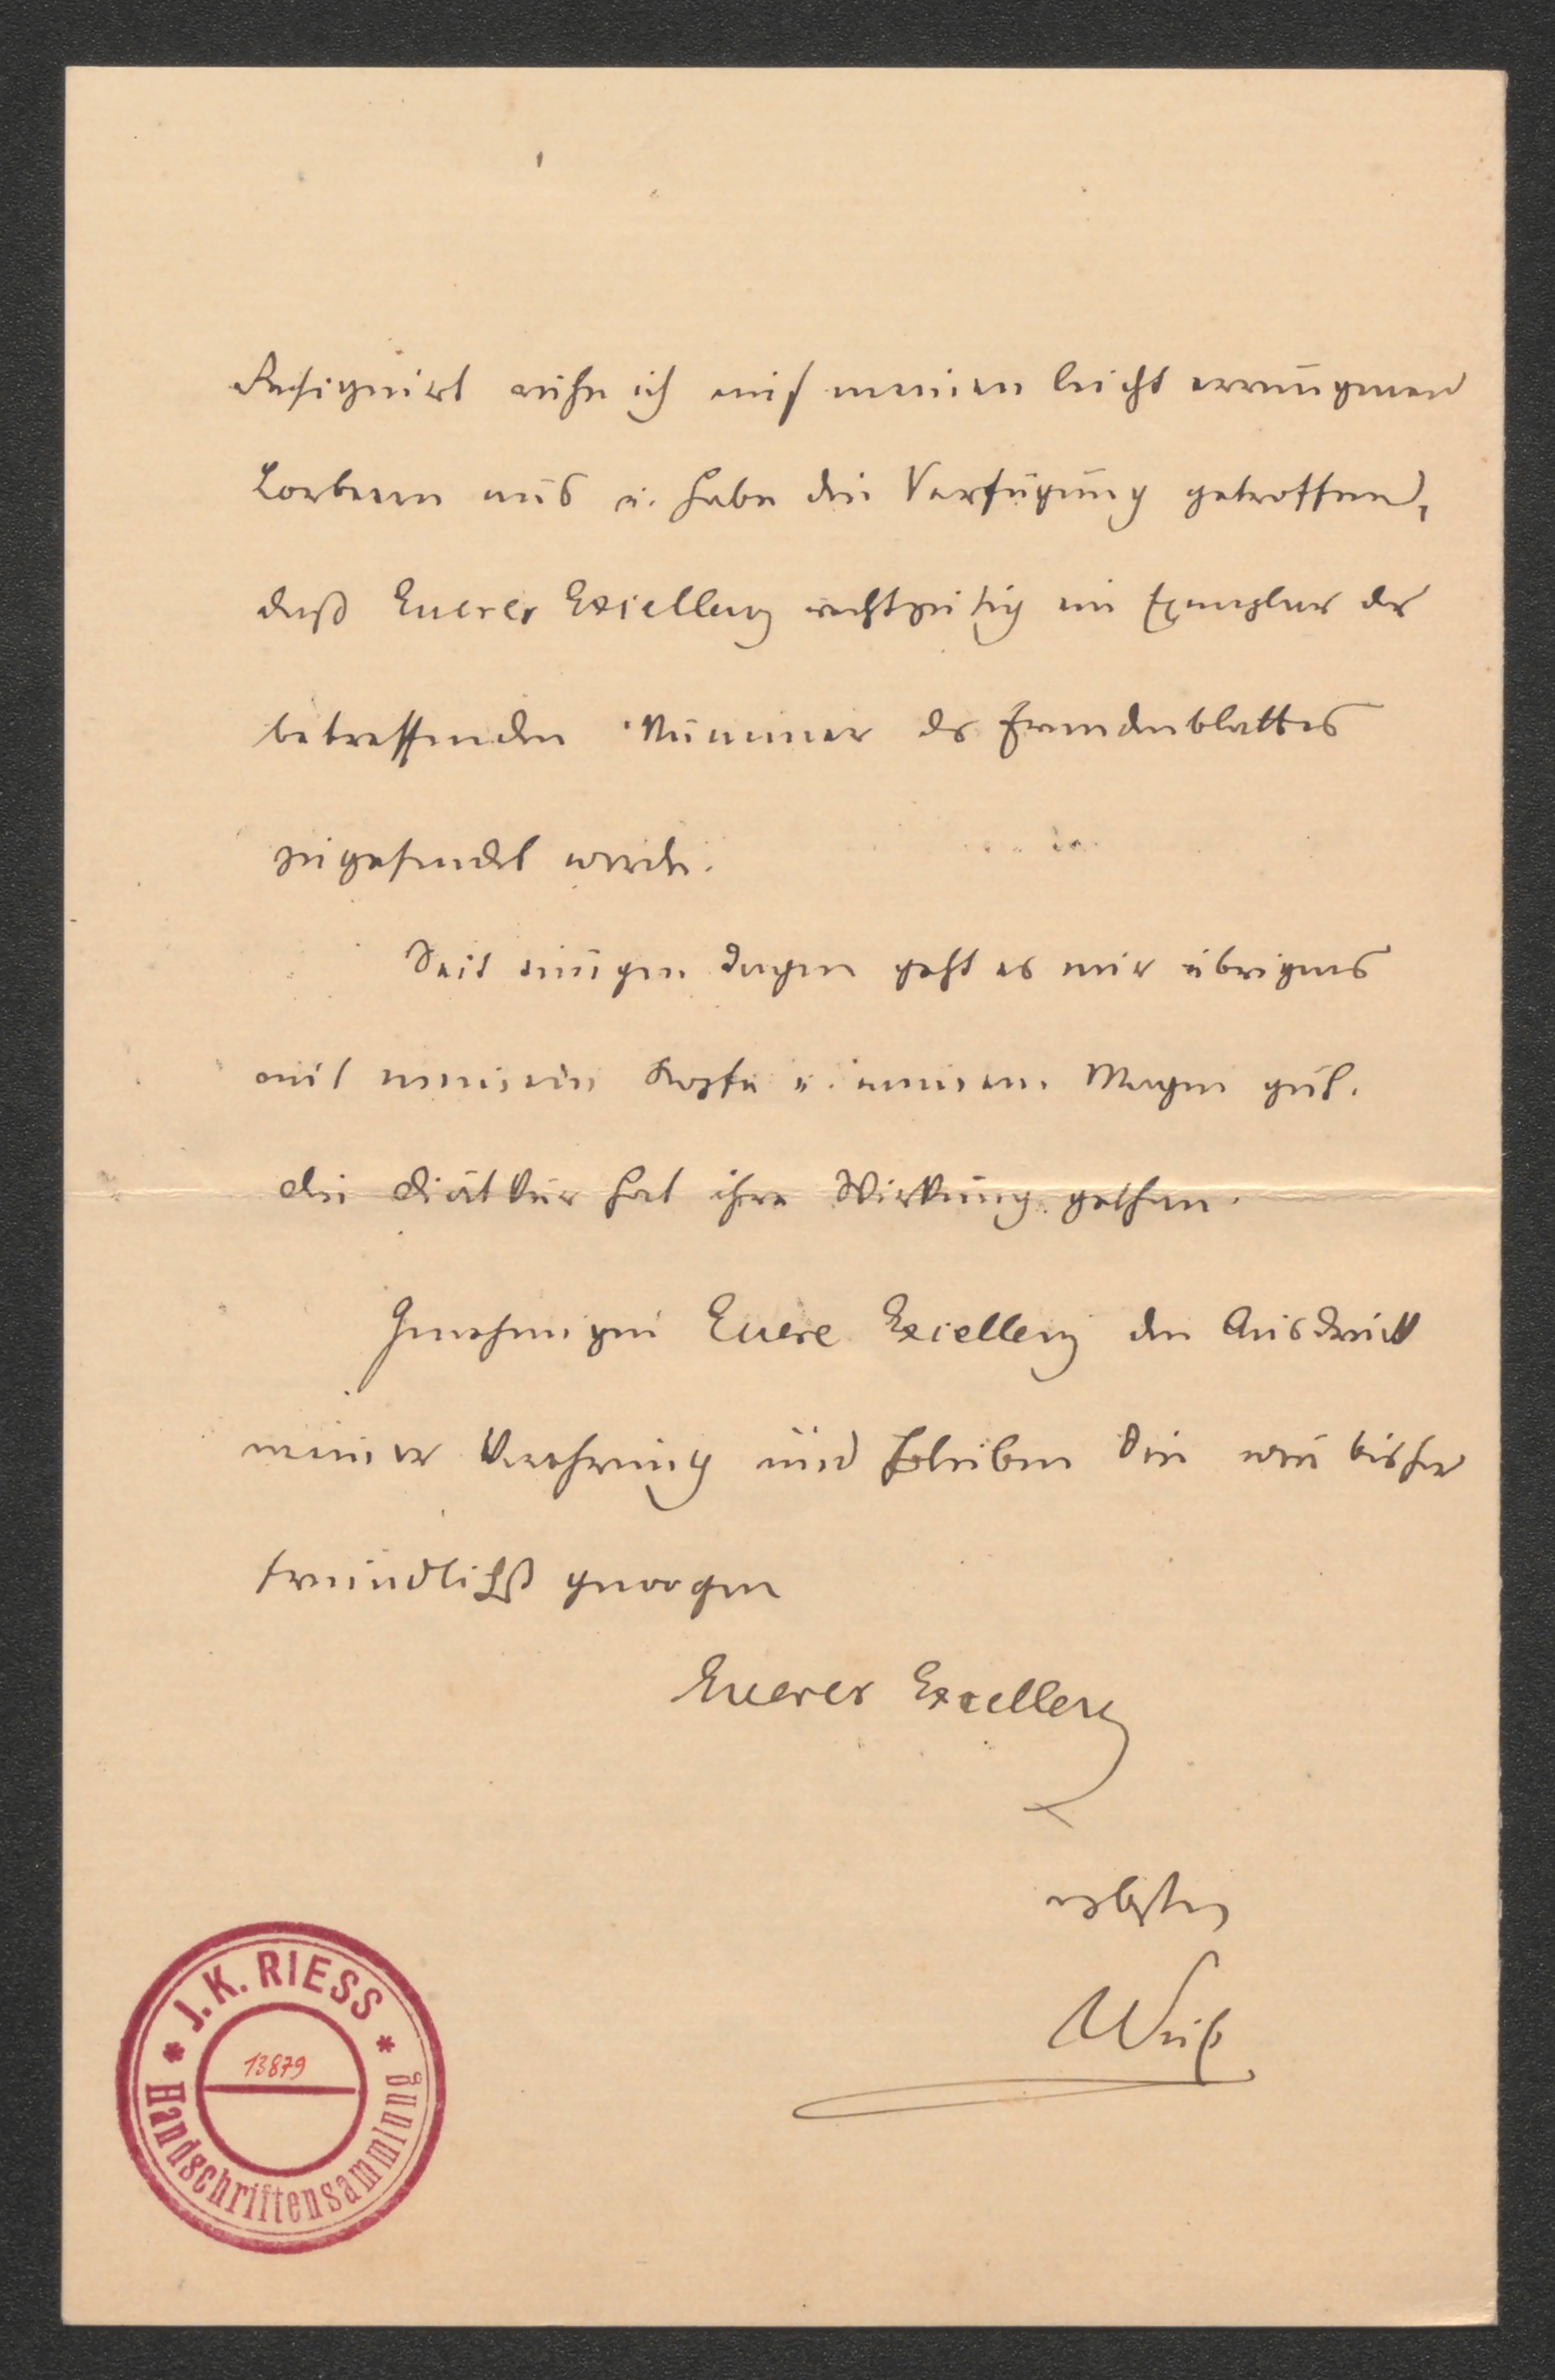 Resignirt ruhe ich auf meinen leicht errungenen
Lorberen aus u. habe die Verfügung getroffen,
daß Euerer Excellenz rechtzeitig ein Exemplar der
betreffenden Nummer des Fremdenblattes
zugesendet werde.
Seit einigen Tagen geht es mir übrigens
mit meinem Kopfe u. meinem Magen gut.
Die Diätkur hat ihre Wirkung gethan.
Genehmigen Euere Excellenz den Ausdruck
meiner Verehrung und bleiben Sie wie bisher
freundlichst gewogen
Euerer Excellenz
J. K. RIESS
13879
Handschriftensammlung